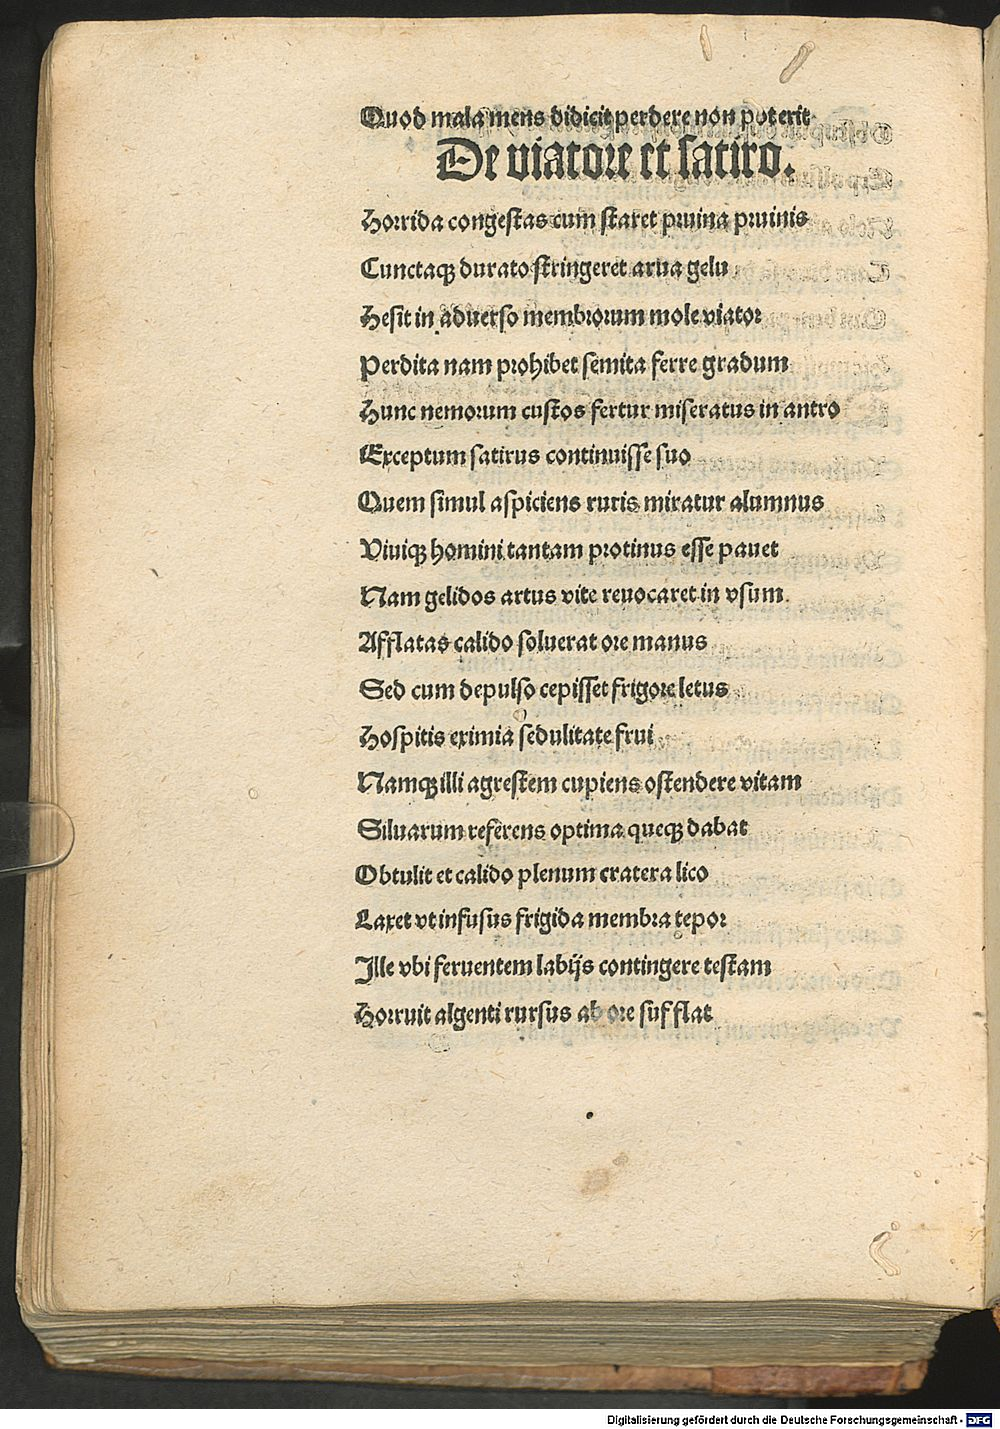 Quod mala mens didicit perdere non poterit
De viatore et satiro.
Horrida congestas cum staret pruina pruinis
Cunctaqꝫ durato stringeret arua gelu
Hesit in aduerso membrorum mole viator
Perdita nam prohibet semita ferre gradum
Hunc nemorum custos fertur miseratus in antro
Exceptum satirus continuisse suo
Quem simul aspiciens ruris miratur alumnus
Viuiqꝫ homini tantam protinus esse pauet
Nam gelidos artus vite reuocaret in vsum.
Afflatas calido soluerat ore manus
Sed cum depulso cepisset frigore letus
Hospitis eximia sedulitate frui
Namqꝫ illi agrestem cupiens ostendere vitam
Siluarum referens optima queqꝫ dabat
Obtulit et calido plenum cratera lico
Laxet vt infusus frigida membra tepor
Ille vbi feruentem labijs contingere testam
Horruit algenti rursus ab ore sufflat
Digitalisierung gefördert durch die Deutsche Forschungsgemeinschaft - DFG